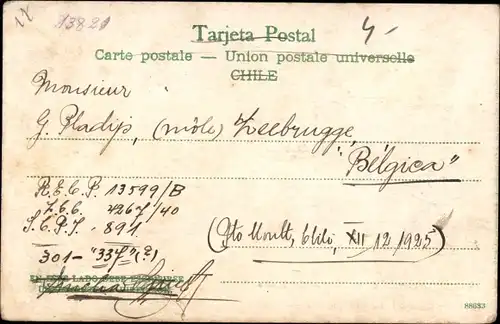 13821
4-
Tarjeta Postal
Carte postale — Union postale universelle
CHILE
Monsieur
G. Pladijs, (môle) Zeebrugge,
"Bélgica"
R.E.C.P. 13599/B
Z.C.C. 4267/40
S.C.P.J. - 891
301-"337"(2)
(Pto Montt, Chile, XII 12/1925)
88633